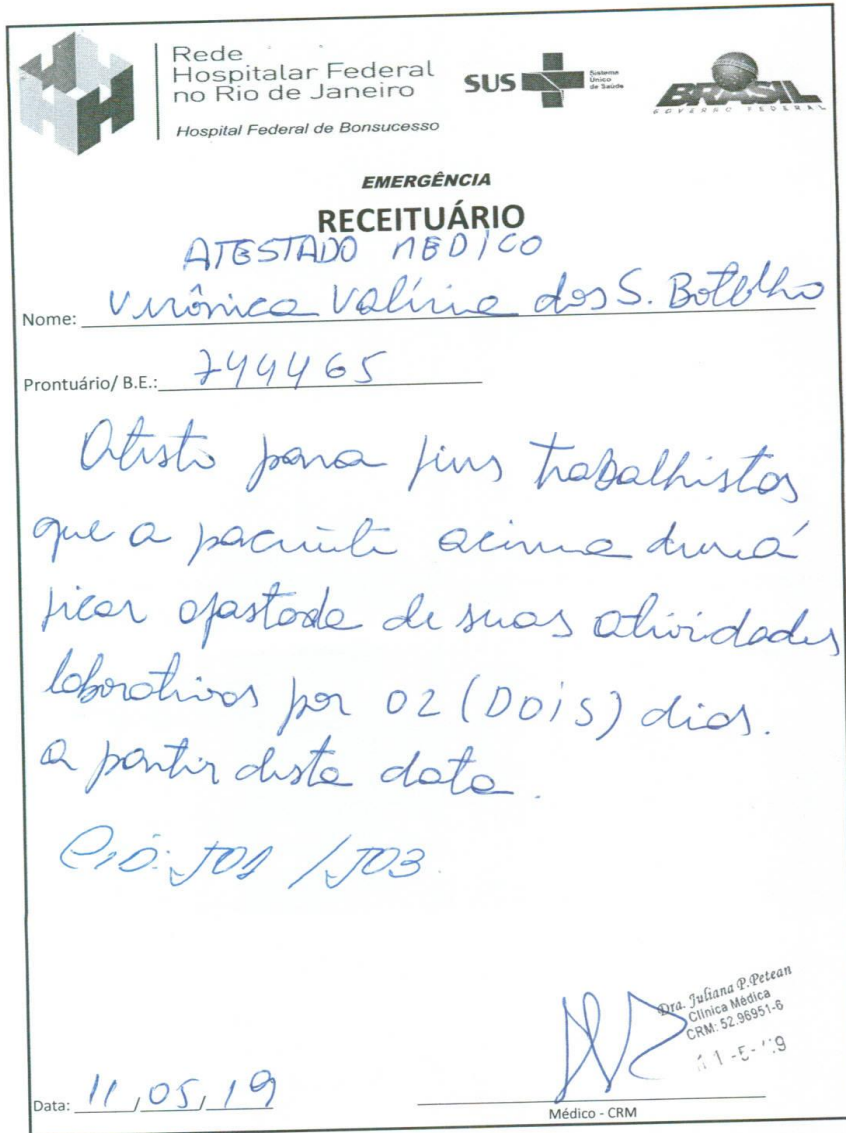 Rede
Hospitalar Federal
no Rio de Janeiro
Hospital Federal de Bonsucesso
SUS
Sistema
Único
de Saúde
BRASIL
GOVERNO FEDERAL
EMERGÊNCIA
RECEITUÁRIO
ATESTADO MEDICO
Nome: Verônica Valéria dos S. Botelho
Prontuário/ B.E.: 744465
Atesto para fins trabalhistas
que a paciente acima deverá
ficar afastada de suas atividades
laborativas por 02 (DOIS) dias.
a partir desta data.
CID: J01 / J03.
Dra. Juliana P. Petean
Clínica Médica
CRM: 52.96951-6
Data: 11, 05, 19
Médico - CRM